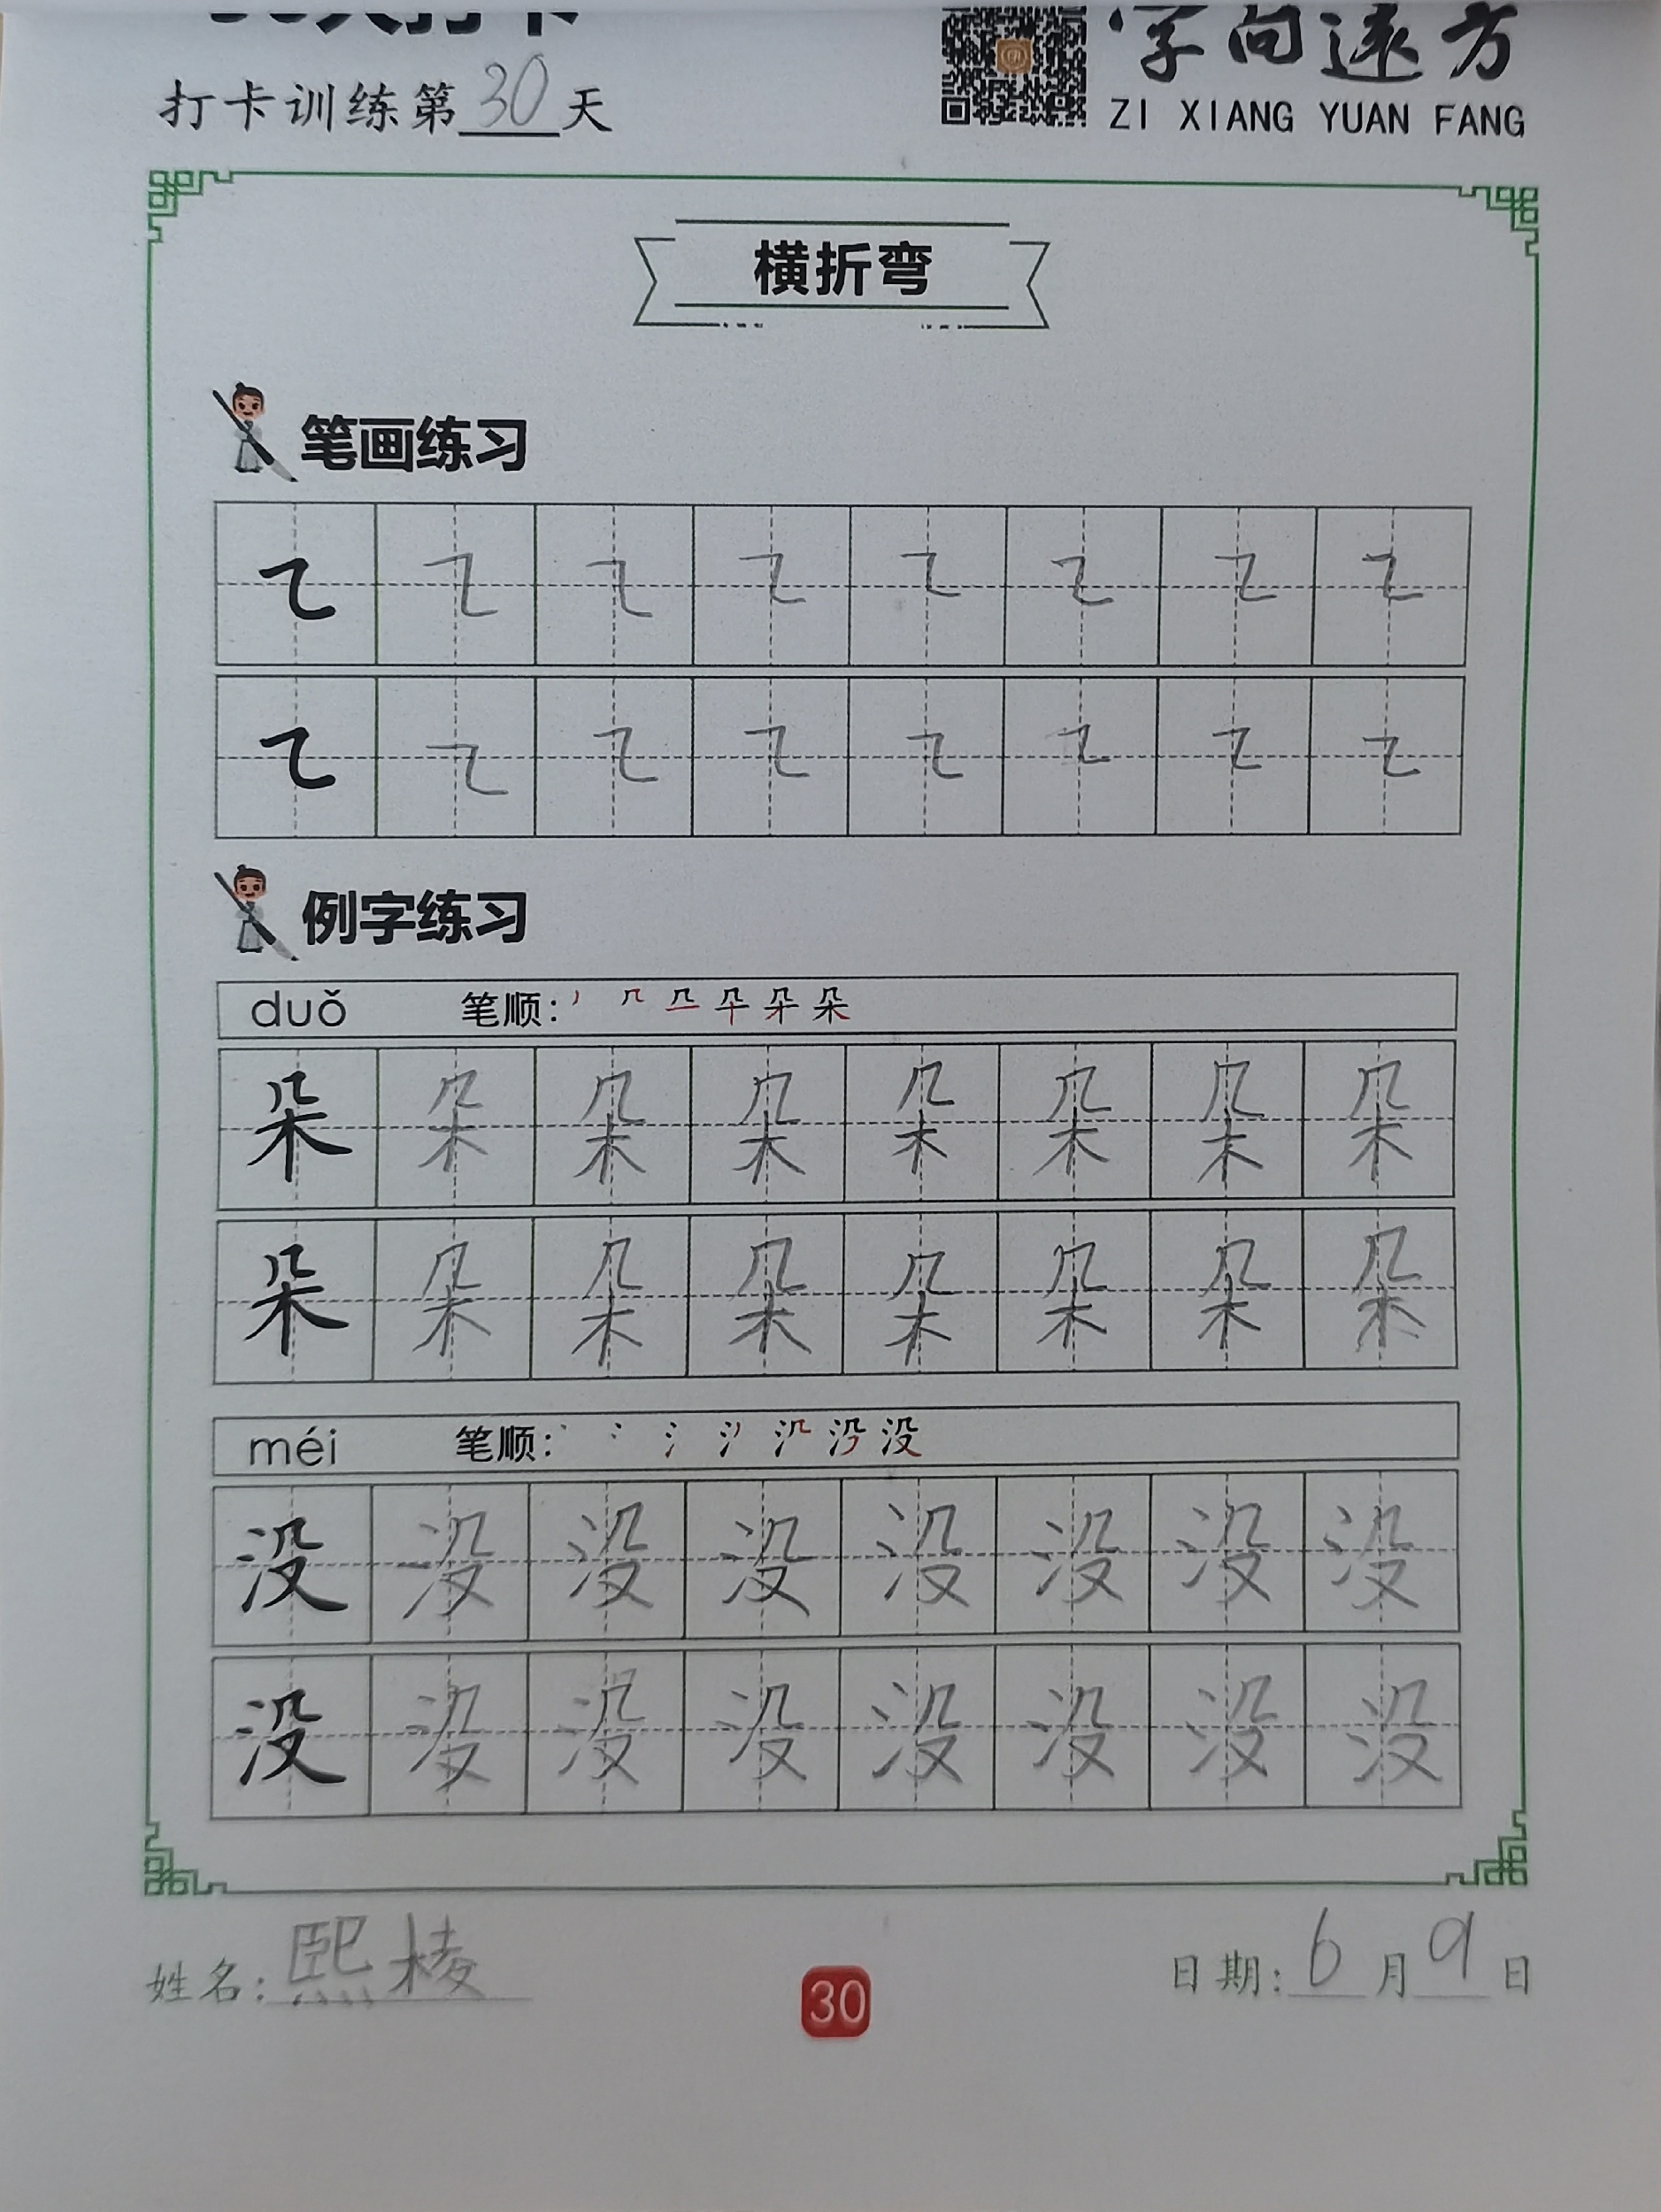 打卡训练第30天
字向远方
ZI XIANG YUAN FANG
横折弯
笔画练习
例字练习
duǒ 笔顺：
朵朵朵朵朵朵朵朵
朵朵朵朵朵朵朵朵
méi 笔顺：
没没没没没没没没
没没没没没没没没
姓名：熙棱
30
日期：6月9日